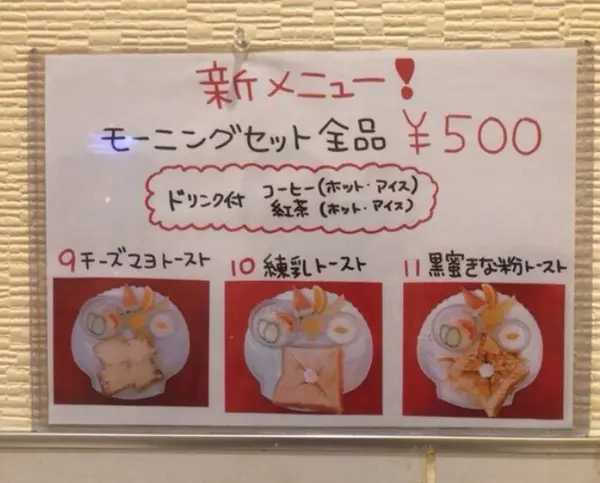 新メニュー!
モーニングセット全品 ¥500
ドリンク付 コーヒー(ホット・アイス)
紅茶 (ホット・アイス)
9 チーズマヨトースト
10 練乳トースト
11 黒蜜きな粉トースト